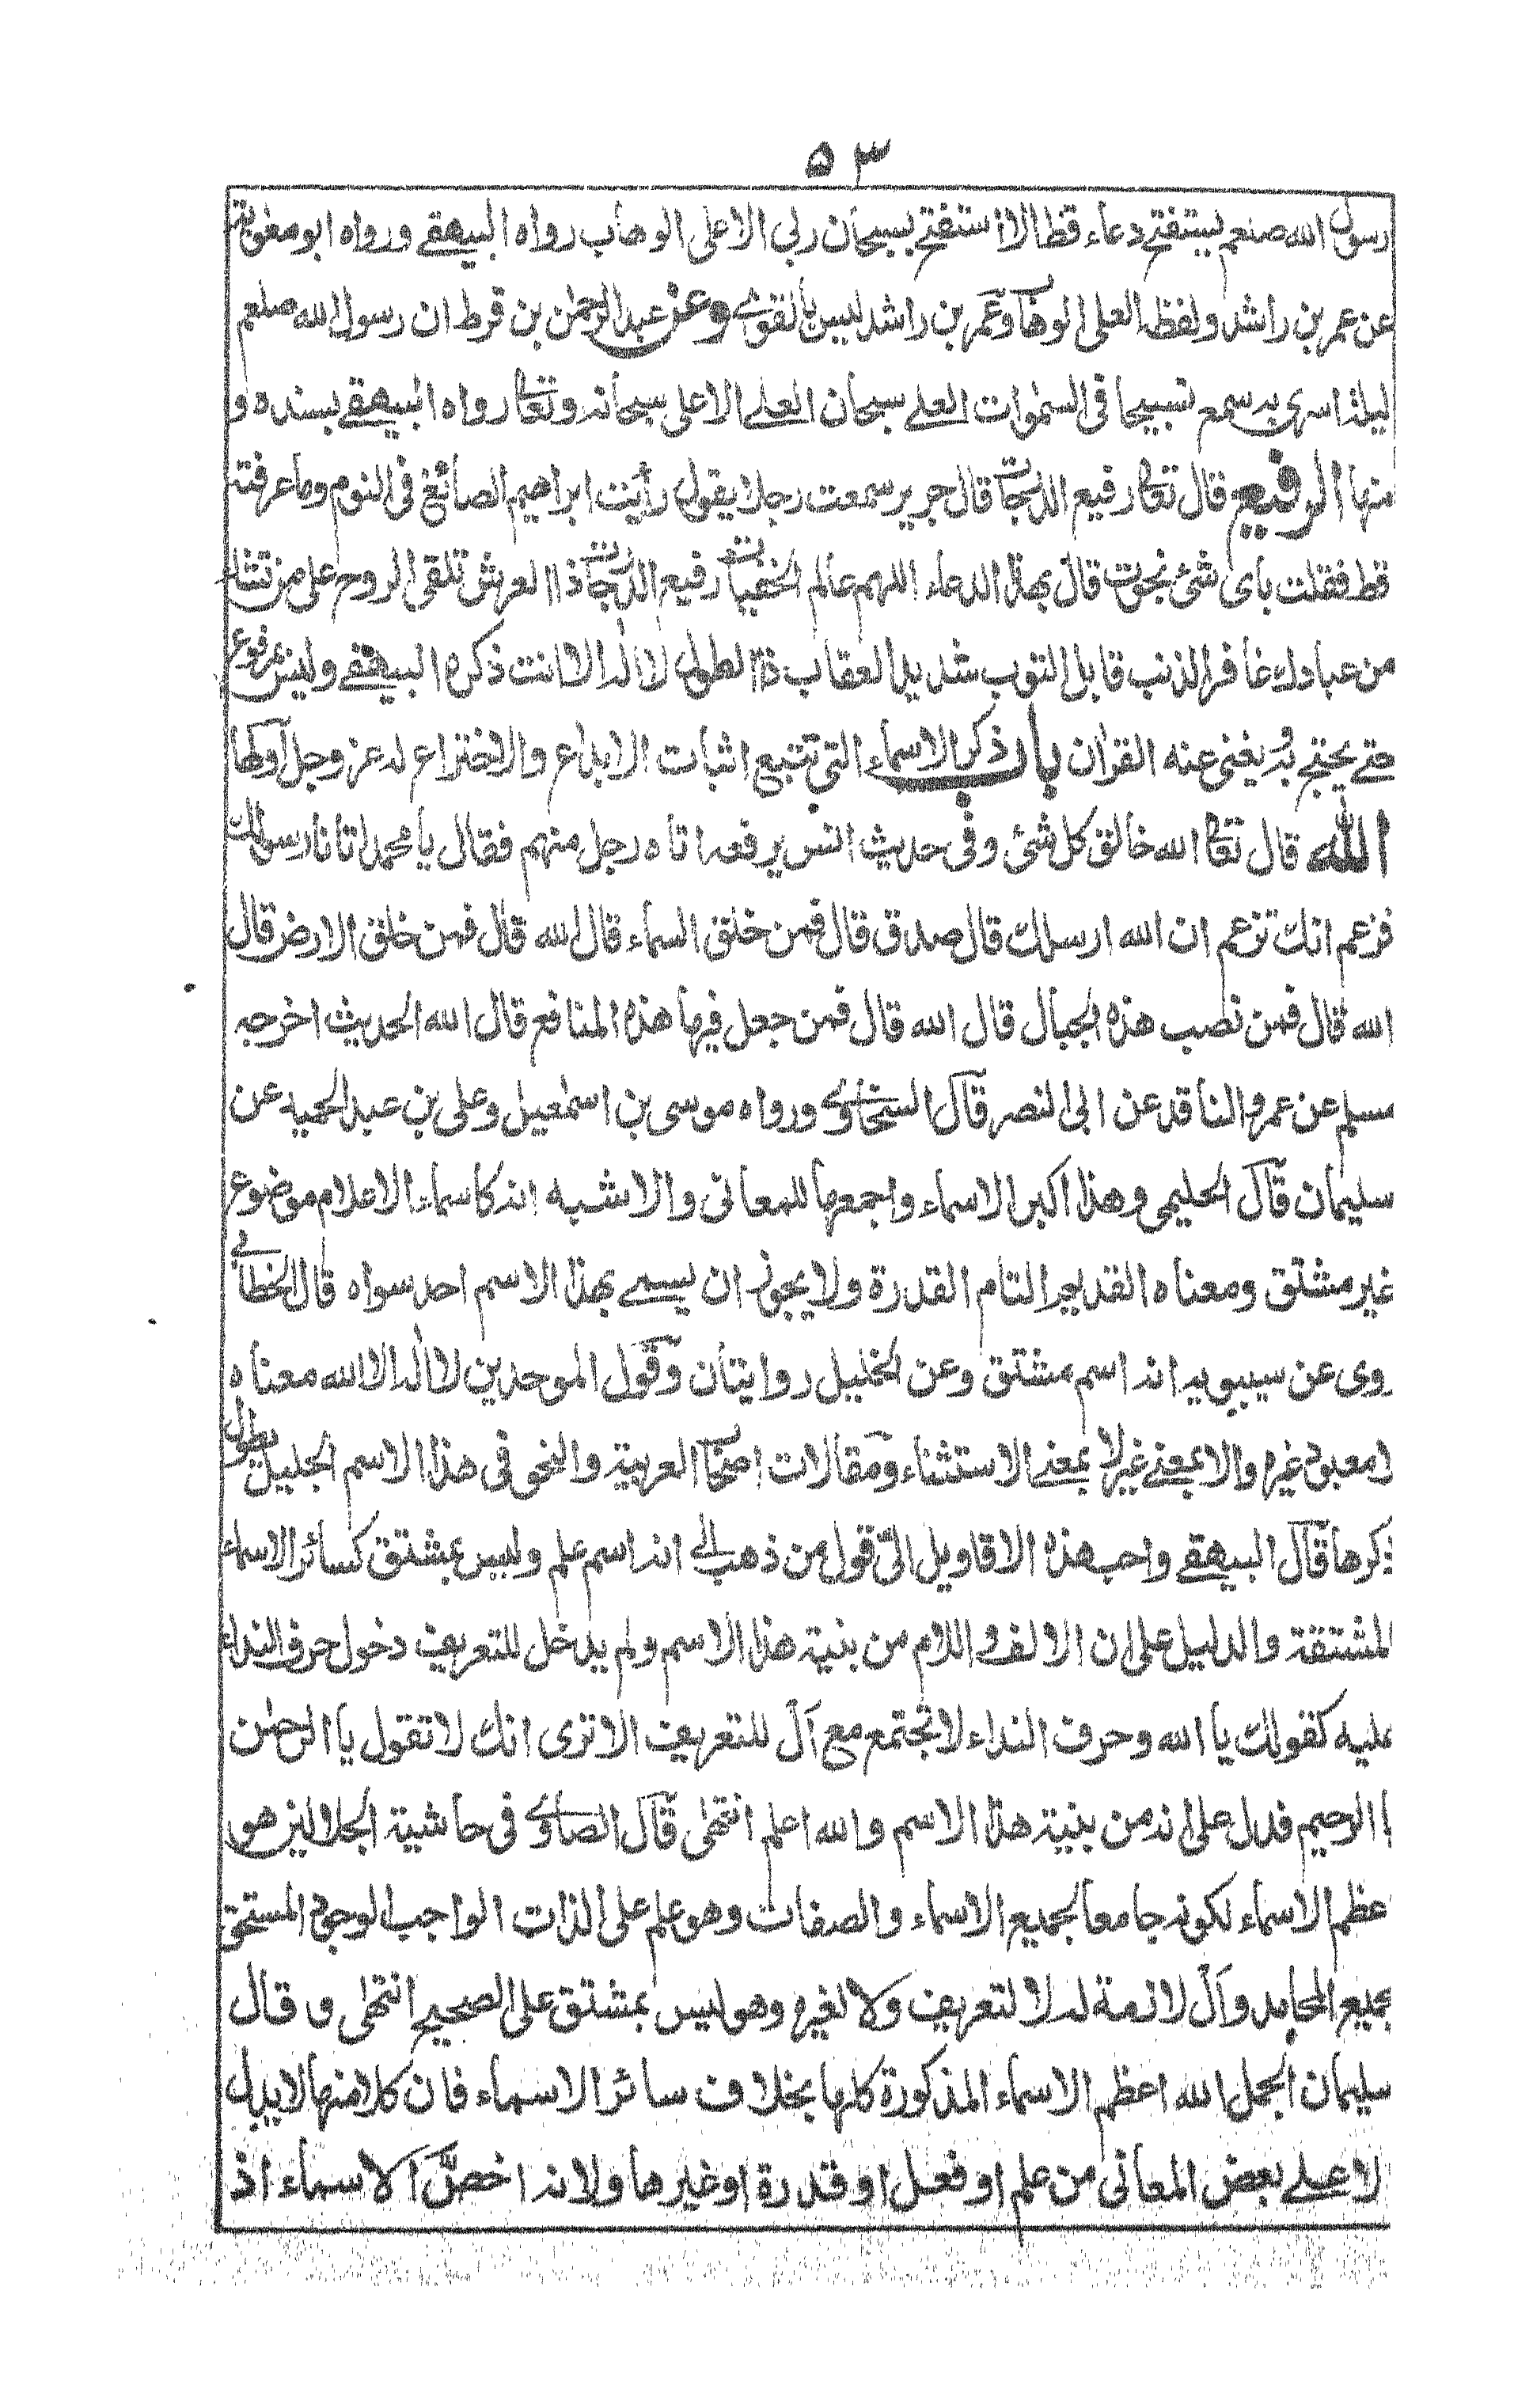 ٥٣
رسول الله صلعم يستفتح دعاء قط الا استفتح بسبحان ربي الاعلى الوهاب رواه البيهقي ورواه ابو معوية
عن عمر بن راشد ولفظه العلى الوهاب وعمر بن راشد ليس بالقوي وعن عبد الرحمن بن قرط ان رسول الله صلعم
ليلة اسرى به سمع تسبيحا في السموات العلے سبحان العلے الاعلى سبحانه وتعالى رواه البيهقي بسنده و
منها الرفيع قال تعالى رفيع الدرجات قال جرير سمعت رجلا يقول رأيت ابراهيم الصائغ في النوم وما عرفته
قط فقلت باى شئ نجوت قال بهذا الدعاء اللهم عالم الخفيات رفيع الدرجات ذا العرش تلقى الروح على من تشاء
من عبادك غافر الذنب قابل التوب شديد العقاب ذا الطول لا اله الا انت ذكره البيهقي وليس بمرفوع
حتے يحتج به ويغنى عنه القران باب ذكر الاسماء التي تتبع اثبات الابداع والاختراع له عز وجل اولها
الله قال تعالى الله خالق كل شئ وفي حديث انس يرفعه اتاه رجل منهم فقال يا محمد اتانا رسولك
فزعم انك تزعم ان الله ارسلك قال صدق قال فمن خلق السماء قال الله قال فمن خلق الارض قال
الله قال فمن نصب هذه الجبال قال الله قال فمن جعل فيها هذه المنافع قال الله الحديث اخرجه
مسلم عن عمرو الناقد عن ابى النضر قال السخاوي ورواه موسى بن اسمعيل وعلى بن عبد الحميد عن
سليمان قال الحليمى وهذا اكبر الاسماء واجمعها للمعانى والاشبه انه كاسماء الاعلام موضوع
غير مشتق ومعناه القديم التام القدرة ولا يجوز ان يسمے بهذا الاسم احد سواه قال الخطابي
روى عن سيبويه انه اسم مشتق وعن الخليل روايتان وقول الموحدين لا اله الا الله معناه
لا معبود غيره والا بمعنے غير لا بمعنے الاستثناء ومقالات اصحاب العربية والنحو في هذا الاسم الجليل يطول
ذكرها قال البيهقے واحب هذه الاقاويل الىّ قول من ذهب الى انه اسم علم وليس بمشتق كسائر الاسماء
المشتقة والدليل على ان الالف واللام من بنية هذا الاسم ولم يدخل للتعريف دخول حرف النداء
عليه كقولك يا الله وحرف النداء لا تجتمع مع ال للتعريف الا ترى انك لا تقول يا الرحمن
يا الرحيم فدل على انه من بنية هذا الاسم والله اعلم انتهى قال الصاوي في حاشية الجلالين هو
اعظم الاسماء لكونه جامعا لجميع الاسماء والصفات وهو علم على الذات الواجب الوجود المستحق
بجميع المحامد وال لازمة له لا لتعريف ولا لغيره وهو ليس بمشتق على الصحيح انتهى و قال
سليمان الجمل الله اعظم الاسماء المذكورة كلها بخلاف سائر الاسماء فان كلا منها لا يدل
الا علے بعض المعانى من علم او فعل او قدرة او غيرها ولانه اخصّ الاسماء اذ